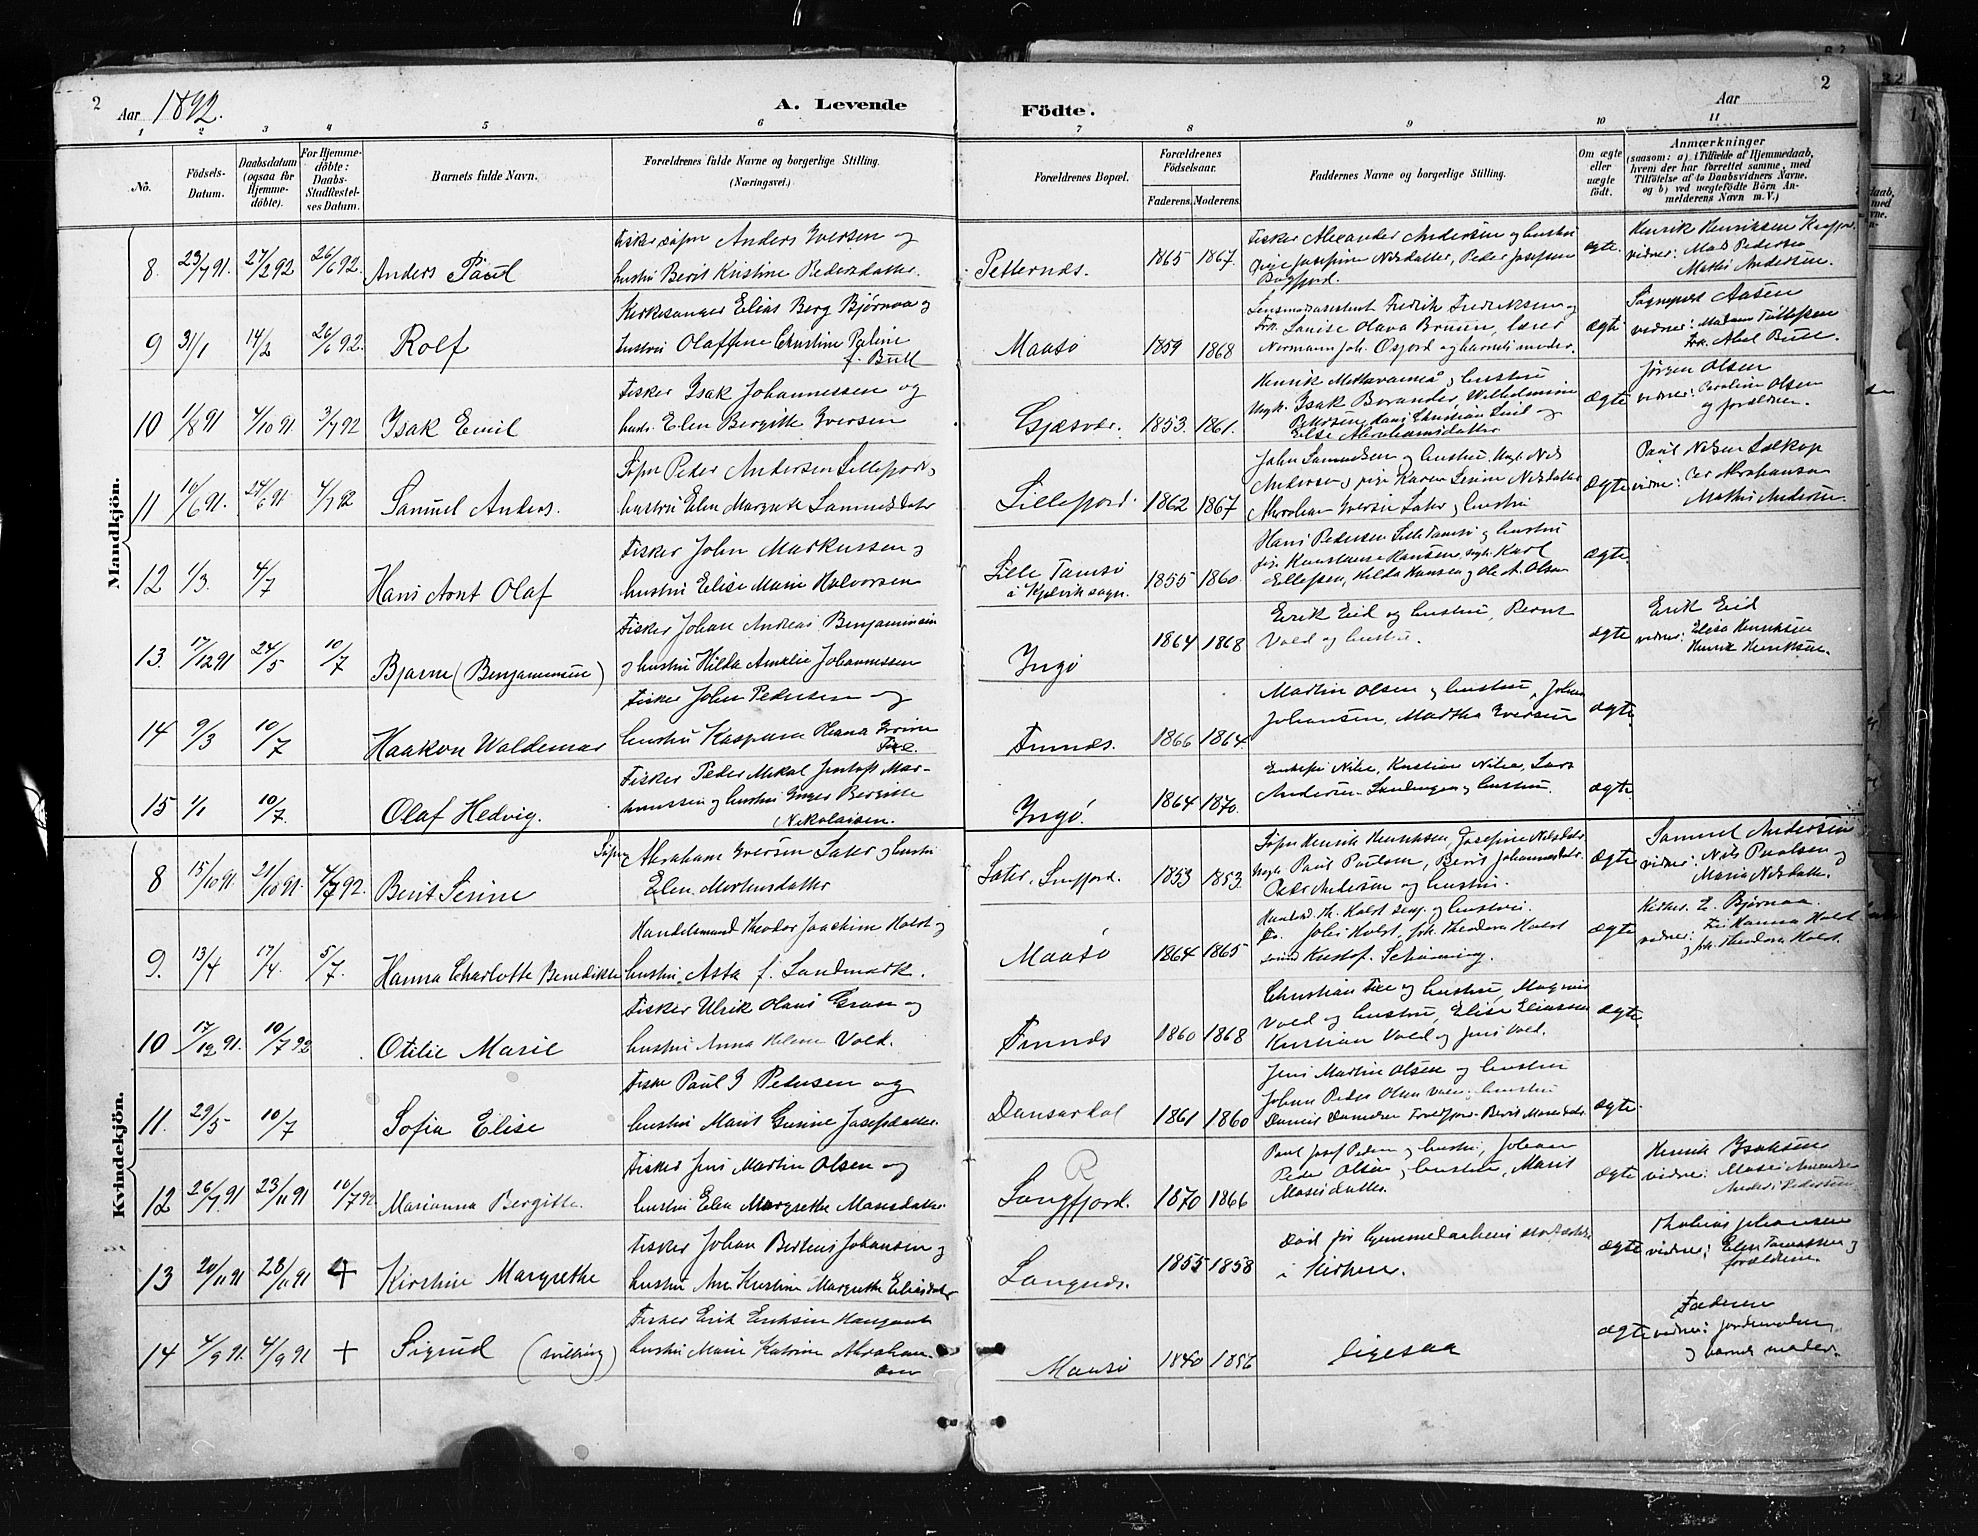 2
Aar 1892.
A. Levende
Födte.
Aar
2
1 2 3 4 5 6 7 8 9 10 11
No.
Födsels-
Datum.
Daabsdatum
(ogsaa for
Hjemme-
döbte).
For Hjemme-
döbte:
Daabs-
Stadfæstel-
ses Datum.
Barnets fulde Navn.
Forældrenes fulde Navne og borgerlige Stilling.
(Næringsvei.)
Forældrenes Bopæl.
Forældrenes
Födselsaar.
Faderens. Moderens.
Faddernes Navne og borgerlige Stilling.
Om ægte
eller
uægte
födt.
Anmærkninger
(saasom: a) i Tilfælde af Hjemmedaab,
hvem der har forrettet samme, med
Tilföielse af to Daabsvidners Navne.
og b) ved uægtefödte Börn An-
melderens Navn m. V.)
Mandkjön.
8. 23/7 91. 27/2 92 26/6 92. Anders Paul
Fisker søfin Anders Iversen og
hustru Berit Kristine Pedersdatter.
1865 1867.
Fisker Alexander Andersen og hustru
Josefine Nilsdatter, Peder Josefsen
ægte.
Henrik Henriksen
vidner: Mads Pedersen
Mathis Andersen.
9 31/1 14/2 26/6 92. Rolf
Kirkesanger Elias Berg Bjørnaa og
hustru Olaffine Christine Paline
f. Bull
Maasø
1859 1868
Lensmandsassistent Fredrik Fredriksen og
Frk. Louise Olava Bruun, lærer
Normann Joh. Osfjord og barnets moder.
ægte
Sogneprest Aasen
vidner: Madam Tollefsen
Frk. Abel Bull.
10 1/8 91 4/10 91 3/7 92 Isak Emil
Fisker Isak Johannessen og
hustr. Elen Bergitte Iversen
Gjæsvær.
1853. 1861.
Elise Abrahamsdatter
ægte
Jørgen Olsen
vidner: Caroline Olsen
og forældrene.
11 10/6 91. 24/6 91 4/7 92 Samuel Anders.
Søfin Peder Andersen Lillefjord,
hustru Elen Margrete Samuelsdatter
Lillefjord.
1862 1867
John Samuelsen og hustru. Ungk. Nils
Andersen, pige Karen Sirine Nilsdatter
Abraham Iversen Sater og hustru
ægte
vidner: Per Abrahamsen
Mathis Andersen.
12 1/3. 4/7 Hans Arnt Olaf
Fisker John Markussen og
hustru Elise Marie Halvorsen
Lille Tamsø
i Kjelvik sogn.
1855 1860
Hans Pedersen Lille Tamsø og hustru
pige Konstanse Hansen, ungk. Karl
Ellefsen, Hilda Hansen og Ole A. Olsen
ægte
13. 17/12 91 24/5 10/7 Bjarne (Benjaminsen)
Fisker Johan Andreas Benjaminsen
og hustru Hilda Amalie Johannessen
Ingø
1864 1868
Erik Eid og hustru, Bernt
Vold og hustru.
ægte
Erik Eid
vidner: Elisa Henriksen
Henrik Henriksen.
14 9/3 10/7 Haakon Waldemar
Fisker John Pedersen og
hustru Kaspara Hana
Finnes.
1866 1864.
Martin Olsen og hustru, Johan
Johansen, Martha Iversen
ægte
15 1/1 10/7. Olaf Hedvig.
Fisker Peder Mikal Jentoft Mar-
kussen og hustru Inger Bergitte
Nikolaisen.
Ingø.
1864 1870.
ægte
Kvindekjön.
8 15/10 91. 21/10 91. 4/7 92. Berit Serine
Søfin Abraham Iversen Sater og hustru
Elen Mortensdatter
Sater, Snefjord.
1853 1853.
Søfin Henrik Henriksen, Josefine Nilsdatter
Ungk. Paul Paulsen, Berit Johannesdatter
Peder Andersen og hustru.
ægte
Samuel Andersen
vidner: Nils Paulsen og
Maria Nilsdatter.
9. 13/4 17/4. 5/7. Hanna Charlotte Benedikte
Handelsmand Theodor Joachim Holst og
hustru Asta f. Landmark.
Maasø
1864 1865
Handelsm. Th. Holst sen. og hustru.
Johs Holst, frk. Theodora Holst
Kristof. Schøning.
ægte
Kirkes. E. Bjørnaa.
vidner: Frk Hanna Holst
og frk. Theodora Holst.
10 17/12 91. 10/7 92 Otilie Marie
Fisker Ulrik Olaus Gran og
hustru Anna Helene Vold.
Finnes
1860 1868
Christian Fixe og hustru, Magnus
Vold og hustru, Elise Eliassen
Kristian Vold og Jens Vold.
ægte
11. 29/5 10/7 Sofia Elise
Fisker Paul J Pedersen og
hustru Marit Gurine Josefsdatter.
1861 1860
Jens Martin Olsen og hustru
Johan Peder Olsen hustru
ægte.
12 26/7 91. 23/11 91 10/7 92 Marianna Bergitte.
Fisker Jens Martin Olsen og
hustru Elen Margrethe Monsdatter.
R
Langfjord.
1870 1866
Paul Josef Pedersen og hustru, Johan
Peder Olsen og hustru, Marit
Mosesdatter.
ægte
Henrik Isaksen
vidner: Anders Pedersen
13 20/11 91 28/11 91 + Kirstine Margrethe
Fisker Johan Bertens Johansen og
hustru Ane Kristine Margrethe Eliasdatter
Langnes.
1855 1858
Død før hjemmedaabens stadfæstelse
i kirken.
ægte
Thobias Johansen
vidner; Elen Tomassen og
forældrene.
14 4/9 91. 4/9 91 + Sigrud (tvilling)
Fisker Erik Eriksen
hustru Marie Katrine Abraham-
sen
Maasø
1840 1856
Ligesaa
ægte
Faderen
vidner: jordemoderen
og barnets moder.